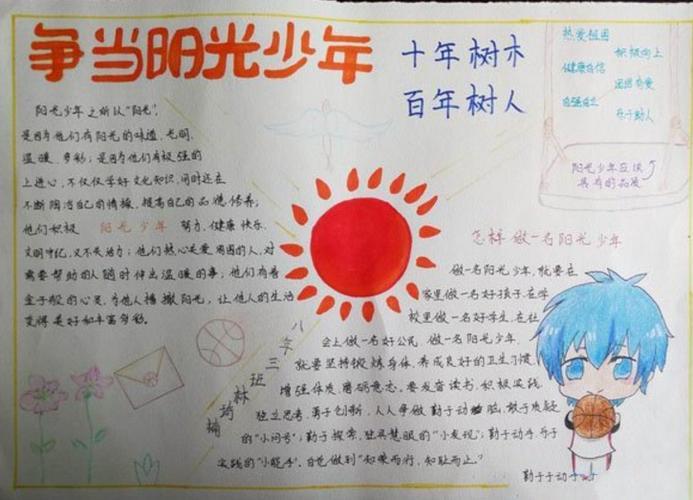 争当阳光少年
十年树木
百年树人
热爱祖国
积极向上
健康自信
团结友爱
自强自立
乐于助人
阳光少年应该
具有的品质
阳光少年之所以“阳光”，
是因为他们有阳光的味道，光明，
温暖，多彩；是因为他们有极强的
上进心，不仅仅学好文化知识，同时还在
不断陶冶自己的情操，提高自己的品德修养；
他们积极 阳光少年 努力，健康快乐，
文明守纪，又不失活力；他们热心关爱周围的人，对
需要帮助的人随时伸出温暖的事；他们有着
金子般的心灵，为他人播撒阳光，让他人的生活
变得美好和丰富多彩。
怎样做一名阳光少年
做一名阳光少年，就要在
家里做一名好孩子，在学
校里做一名好学生，在社
会上做一名好公民，做一名阳光少年，
就要坚持锻炼身体，养成良好的卫生习惯，
增强体质，磨砺意志。要发奋读书，积极实践，
独立思考，勇于创新，人人争做勤于动脑，敢于质疑
的“小问号”；勤于探索，独具慧眼的“小发现”；勤于动手，乐于
实践的“小能手”，自觉做到“知荣而行，知耻而止。”
八年三班
林培楠
勤于于动于于